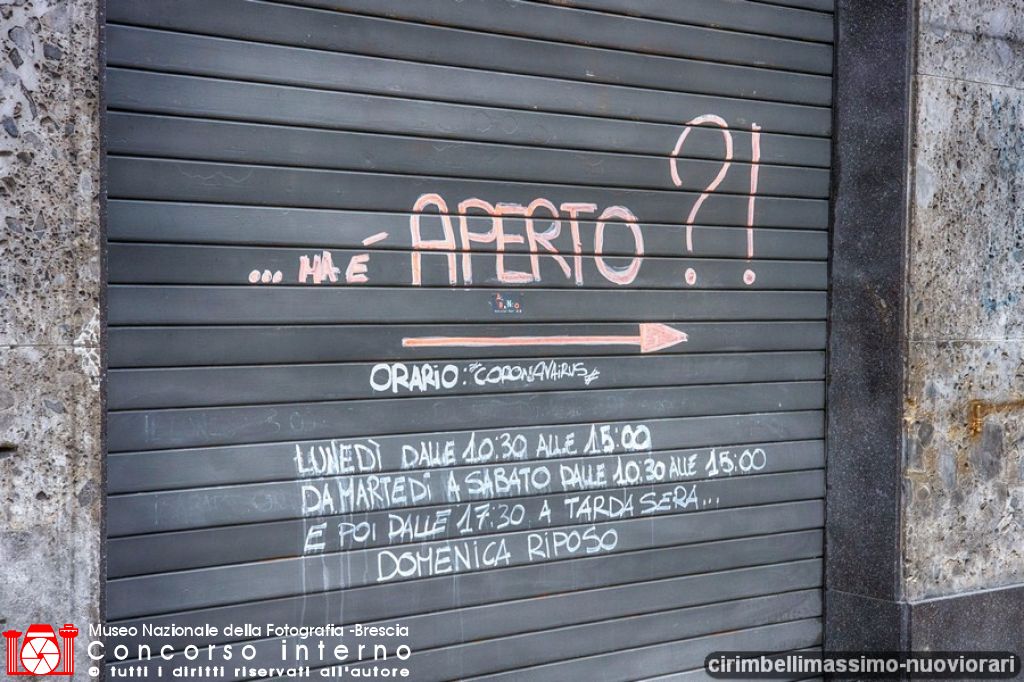 ... MA É APERTO ?!
ORARIO: "CORONAVAIRUS"
LUNEDÌ DALLE 10:30 ALLE 15:00
DA MARTEDÌ A SABATO DALLE 10:30 ALLE 15:00
E POI DALLE 17:30 A TARDA SERA...
DOMENICA RIPOSO
Museo Nazionale della Fotografia -Brescia
Concorso interno
© tutti i diritti riservati all'autore
cirimbellimassimo-nuoviorari